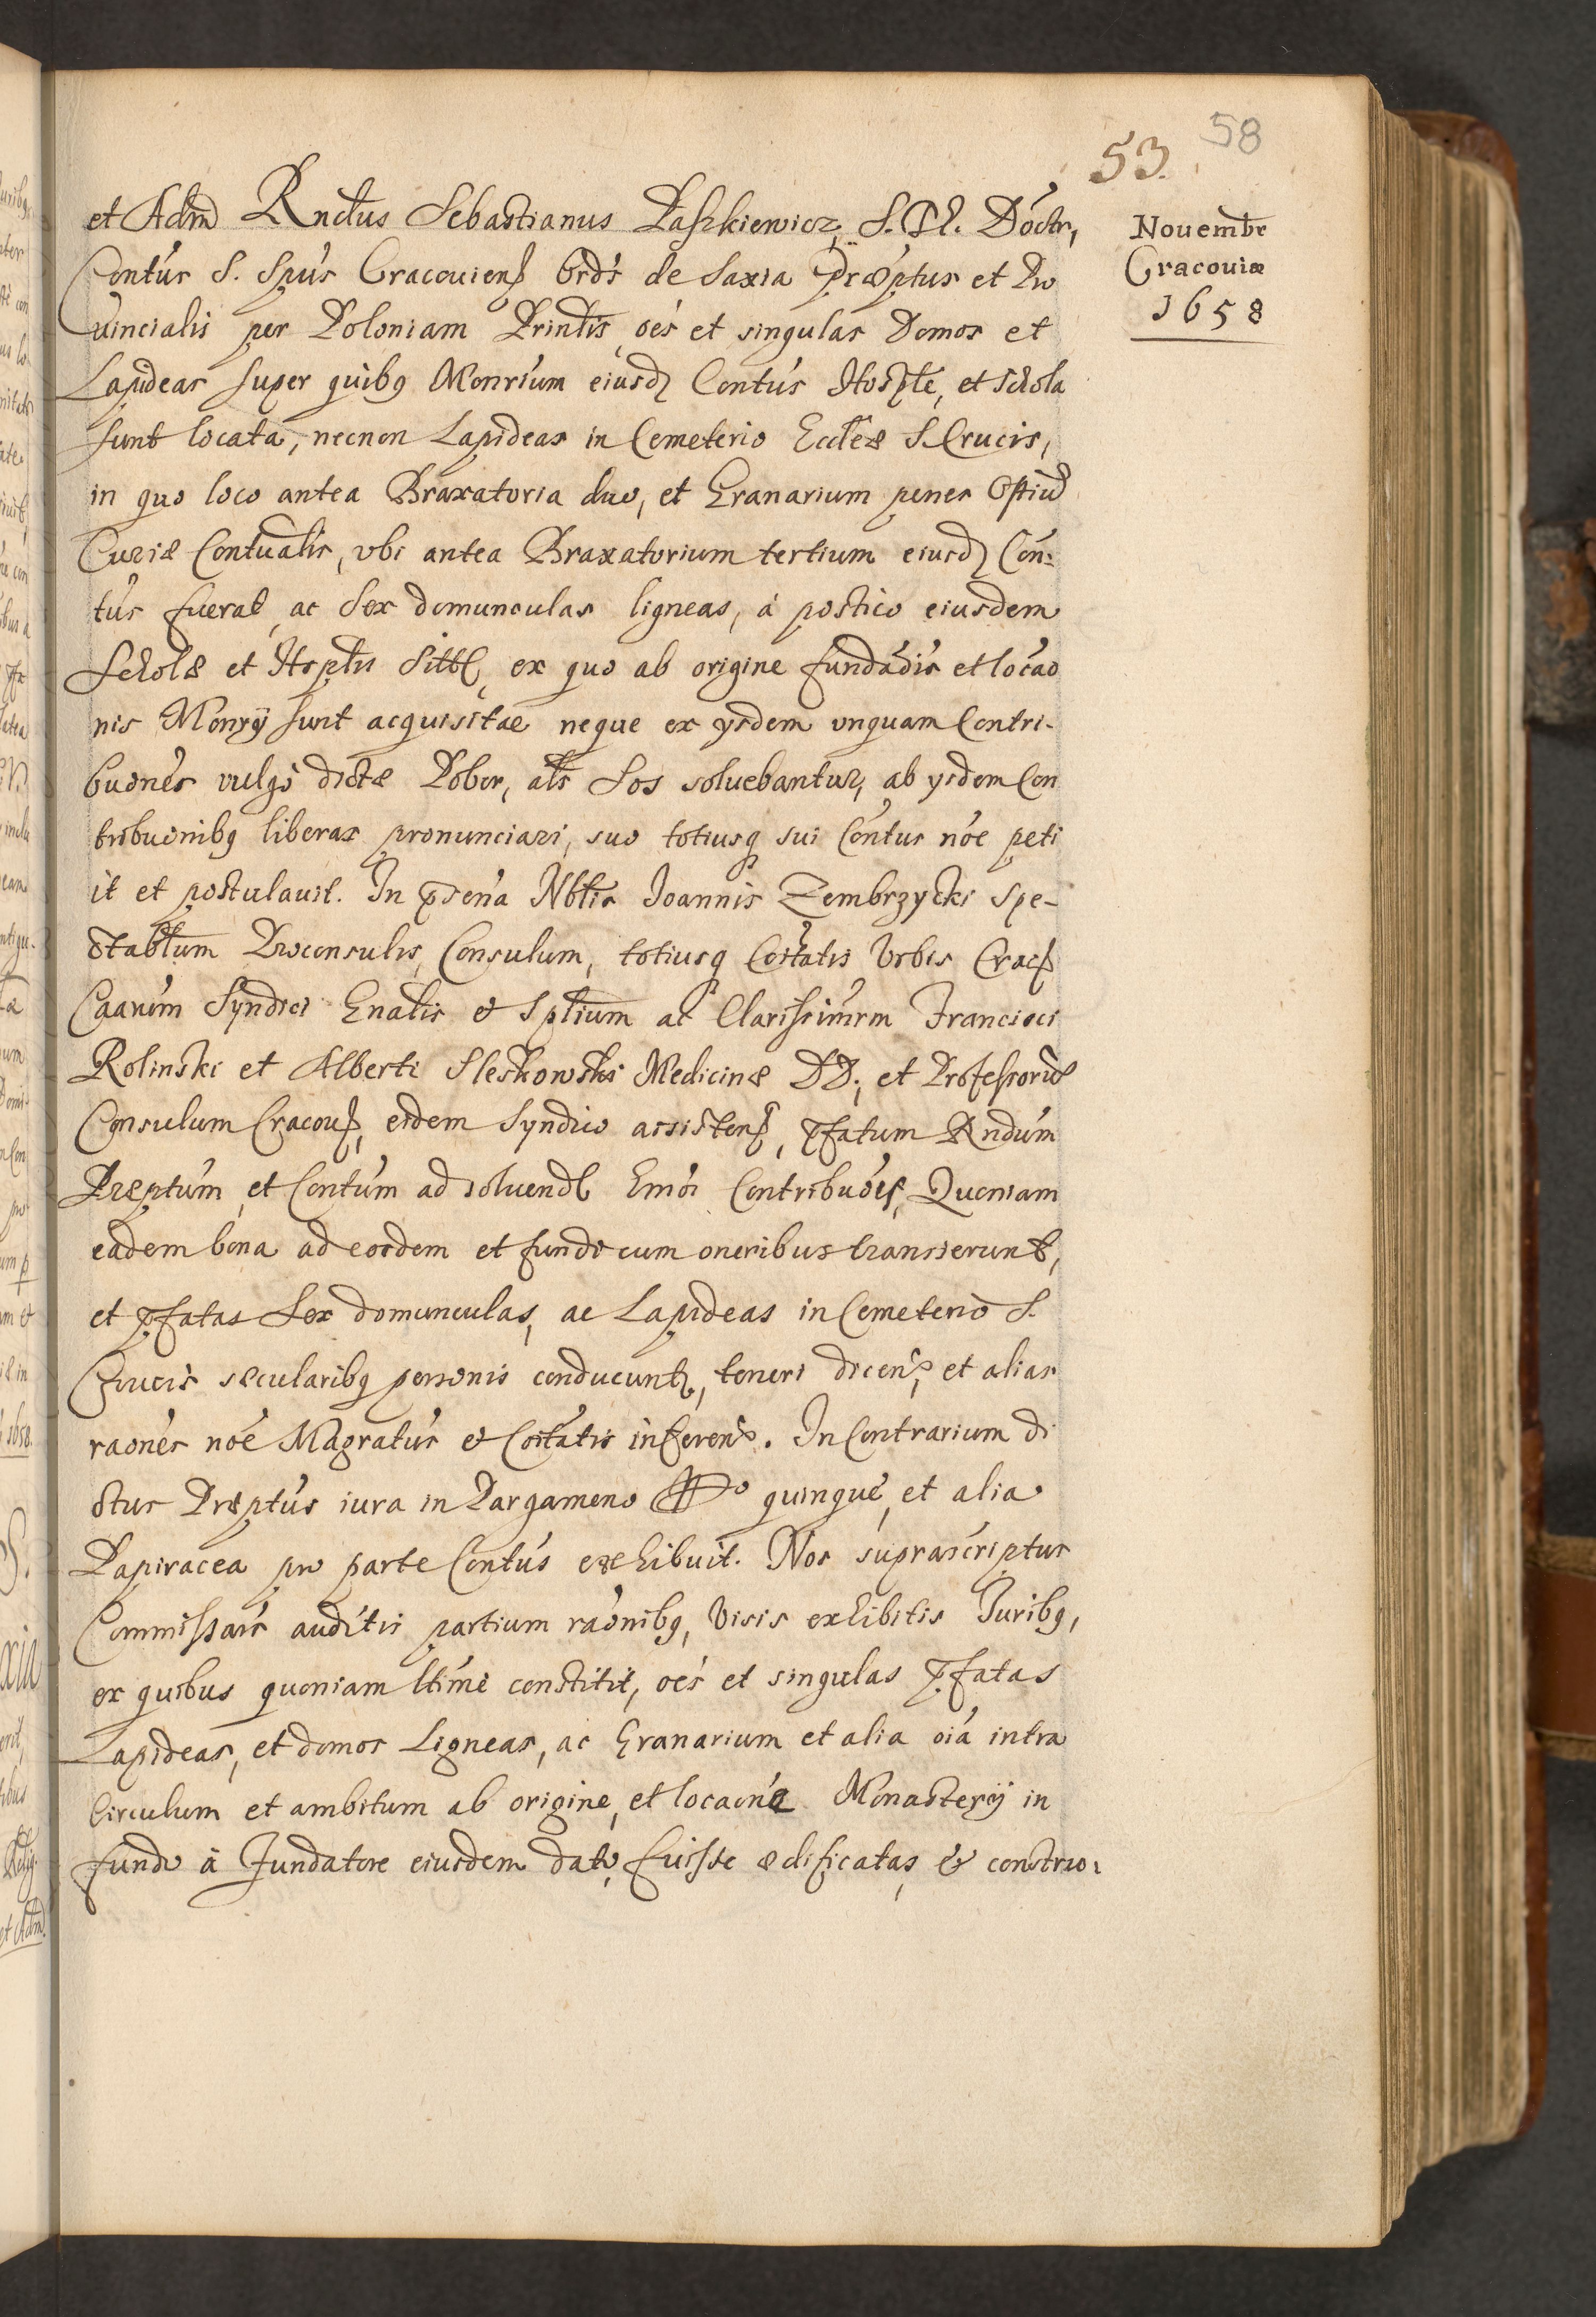 53. 58
Nouembr
Cracouiæ
1658
et Adm Rndus Sebastianus Paszkiewicz, S. Th. Doctr,
Contus S. Spus Cracouiens Ords de Saxia Præptus et Pro
uincialis per Poloniam Printis, oes et singulas Domos et
Lapideas super quibq Monrium eiusdz Contus Hosple, et schola
sunt locata, necnon Lapideas in Cemeterio Eccleæ S. Crucis,
in quo loco antea Braxatoria duo, et Granarium penes Ostiu
Curiæ Contualis, vbi antea Braxatorium tertium eiusdz Con:
tus fuerat, ac Sex domunculas ligneas, á postico eiusdem
Scholæ et Hosptlis Sitt, ex quo ab origine fundaois et locao
nis Monrij sunt acquisitae neque ex ysdem vnquam Contri-
buones vulgo dictæ Pobor, als Sos soluebantur, ab ysdem Con
tribuonibq liberas pronunciari, suo totiusq sui Contus noe peti
it et postulauit. In psena Nblis Ioannis Zembrzycki Spe-
ctablium Proconsulis, Consulum, totiusq Coitatis Vrbis Crac
Caarum Syndici Gnalis et Splium ac Clarissimrm Francisci
Rolinski et Alberti Sleskowski Medicinæ DD. et Professoru
Consulum Cracou, eidem Syndico assisten, pfatum Rndum
Præptum, et Contum ad soluend Emoi Contribuoes, Quoniam
eadem bona ad eosdem et fundi cum oneribus transierunt,
et pfatas Sex domunculas, ac Lapideas in Cemeterio S.
Crucis sæcularibq personis conducunt, teneri dicen, et alias
raones noe Magratus et Coitatis inferen. In Contrarium di
ctus Præptus iura in Pargameno quinque, et alia
Papiracea pro parte Contus exhibuit. Nos suprascriptus
Commissars auditis partium raonibq, Visis exhibitis Iuribq,
ex quibus quoniam ltime constitit, oes et singulas pfatas
Lapideas, et domos Ligneas, ac Granarium et alia oia intra
Circulum et ambitum ab origine, et locaone Monasterij in
fundo á Fundatore eiusdem dato, fuisse ædificatas, et constru: